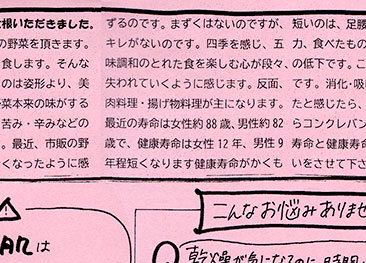 ずるのです。まずくはないのですが、
キレがないのです。四季を感じ、五
味調和のとれた食を楽しむ心が段々、
失われていくように感じます。反面、
肉料理・揚げ物料理が主になります。
最近の寿命は女性約88歳、男性約82
歳で、健康寿命は女性12年、男性9
年程短くなります健康寿命がかくも
短いのは、足腰
力、食べたもの
の低下です。こ
です。消化・吸
たと感じたら、
らコンクレバン
寿命と健康寿命
いをさせて下さ
根いただきました。
の野菜を頂きます。
食します。そんな
のは姿形より、美
菜本来の味がする
苦み・辛みなどの
。最近、市販の野
くなったように感
こんなお悩みありませ
は
乾燥が気になるのに、時間